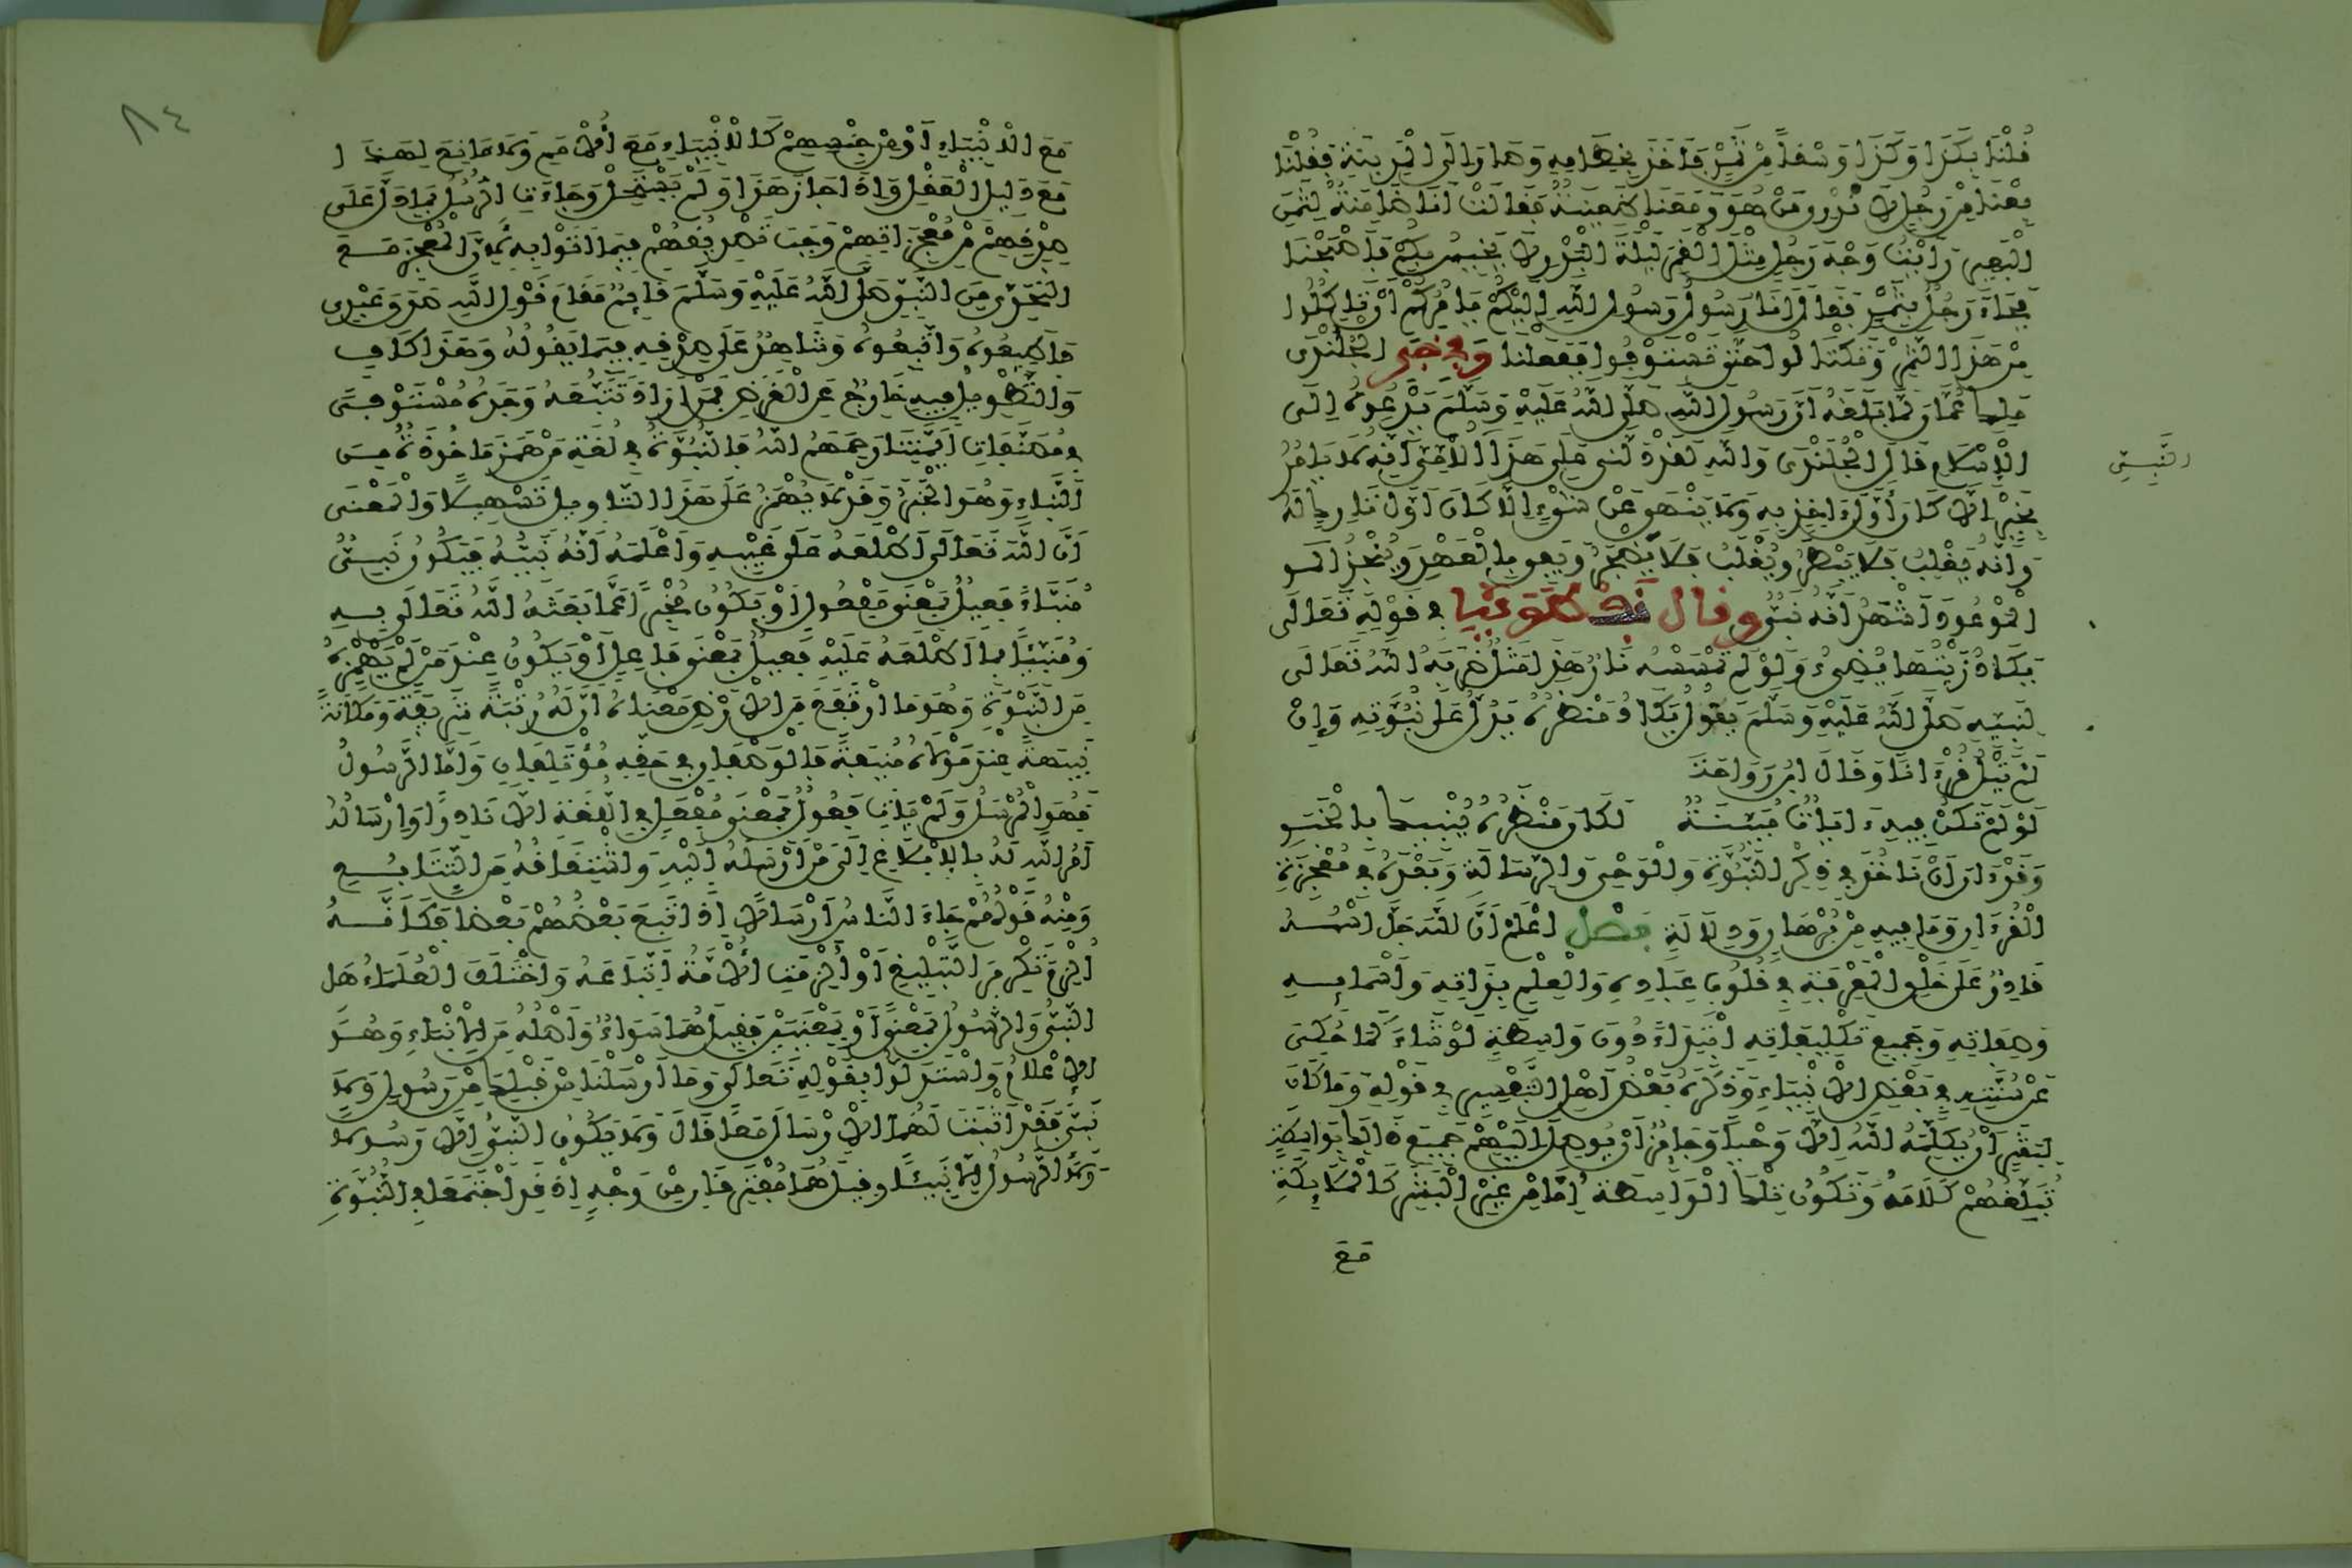 قُلْنَا بِكَذَا وَكَذَا وَسْقاً مِنْ تَمْرٍ فَأَخَذَ بِخِطَامِهِ وَسَارَ إِلَى الْمَدِينَةِ فَقُلْنَا
بِعْنَا مِنْ رَجُلٍ لَا نَدْرِي مَنْ هُوَ وَمَعَنَا ظَعِينَةٌ فَقَالَتْ أَنَا ضَامِنَةٌ لِثَمَنِ
الْبَعِيرِ رَأَيْتُ وَجْهَ رَجُلٍ مِثْلَ الْقَمَرِ لَيْلَةَ الْبَدْرِ لَا يَخِيسُ بِكُمْ فَأَصْبَحْنَا
فَجَاءَ رَجُلٌ بِتَمْرٍ فَقَالَ أَنَا رَسُولُ رَسُولِ اللَّهِ إِلَيْكُمْ يَأْمُرُكُمْ أَنْ تَأْكُلُوا
مِنْ هَذَا التَّمْرِ وَتَكْتَالُوا حَتَّى تَسْتَوْفُوا فَفَعَلْنَا وَفِي خَبَرِ الْجُلَنْدَى
مَلِكِ عُمَانَ لَمَّا بَلَغَهُ أَنَّ رَسُولَ اللَّهِ صَلَّى اللَّهُ عَلَيْهِ وَسَلَّمَ يَدْعُوهُ إِلَى
الْإِسْلَامِ قَالَ الْجُلَنْدَى وَاللَّهِ لَقَدْ دَلَّنِي عَلَى هَذَا الْأُمِّيِّ أَنَّهُ لَا يَأْمُرُ
بِخَيْرٍ إِلَّا كَانَ أَوَّلَ ءَاخِذٍ بِهِ وَلَا يَنْهَى عَنْ شَيْءٍ إِلَّا كَانَ أَوَّلَ تَارِكٍ لَهُ
وَأَنَّهُ يَغْلِبُ فَلَا يَبْطَرُ وَيُغْلَبُ فَلَا يَضْجَرُ وَيَفِي بِالْعَهْدِ وَيُنْجِزُ
الْمَوْعُودَ أَشْهَدُ أَنَّهُ نَبِيٌّ وقال نفطويه فِي قَوْلِهِ تَعَالَى
يَكَادُ زَيْتُهَا يُضِيءُ وَلَوْ لَمْ تَمْسَسْهُ نَارٌ هَذَا مَثَلٌ ضَرَبَهُ اللَّهُ تَعَالَى
لِنَبِيِّهِ صَلَّى اللَّهُ عَلَيْهِ وَسَلَّمَ يَقُولُ يَكَادُ مَنْظَرُهُ يَدُلُّ عَلَى نُبُوَّتِهِ وَإِنْ
لَمْ يَتْلُ قُرْءَانًا وَقَالَ ابْنُ رَوَاحَةَ
لَوْ لَمْ تَكُنْ فِيهِ ءَايَاتٌ مُبَيِّنَةٌ لَكَانَ مَنْظَرُهُ يُنْبِيكَ بِالْخَبَرِ
وَقَدْ ءَانَ أَنْ نَأْخُذَ فِي ذِكْرِ النُّبُوَّةِ وَالْوَحْيِ وَالرِّسَالَةِ وَبَعْدَهُ فِي مُعْجِزَةِ
الْقُرْءَانِ وَمَا فِيهِ مِنْ بُرْهَانٍ وَدِلَالَةٍ فصل اعْلَمْ أَنَّ اللَّهَ جَلَّ اسْمُهُ
قَادِرٌ عَلَى خَلْقِ الْمَعْرِفَةِ فِي قُلُوبِ عِبَادِهِ وَالْعِلْمِ بِذَاتِهِ وَأَسْمَائِهِ
وَصِفَاتِهِ وَجَمِيعِ تَكْلِيفَاتِهِ ابْتِدَاءً دُونَ وَاسِطَةٍ لَوْ شَاءَ كَمَا حُكِيَ
عَنْ سُنَّتِهِ فِي بَعْضِ الْأَنْبِيَاءِ وَذَكَرَهُ بَعْضُ أَهْلِ التَّفْسِيرِ فِي قَوْلِهِ وَمَا كَانَ
لِبَشَرٍ أَنْ يُكَلِّمَهُ اللَّهُ إِلَّا وَحْيًا وَجَائِزٌ أَنْ يُوصِلَ إِلَيْهِمْ جَمِيعَ ذَلِكَ بِوَاسِطَةٍ
تُبَلِّغُهُمْ كَلَامَهُ وَتَكُونُ تِلْكَ الْوَاسِطَةُ إِمَّا مِنْ غَيْرِ الْبَشَرِ كَالْمَلَائِكَةِ
مَعَ
النَّبِيِّ
٨٤
مَعَ الْأَنْبِيَاءِ أَوْ مِنْ جِنْسِهِمْ كَالْأَنْبِيَاءِ مَعَ الْأُمَمِ وَلَا مَانِعَ لِهَذَا
مِنْ دَلِيلِ الْعَقْلِ وَإِذَا جَازَ هَذَا وَلَمْ يَسْتَحِلْ وَجَاءَتِ الرُّسُلُ بِمَا دَلَّ عَلَى
صِدْقِهِمْ مِنْ مُعْجِزَاتِهِمْ وَجَبَ تَصْدِيقُهُمْ فِيمَا أَتَوْا بِهِ لِأَنَّ الْمُعْجِزَ مَعَ
التَّحَدِّي مِنَ النَّبِيِّ صَلَّى اللَّهُ عَلَيْهِ وَسَلَّمَ قَائِمٌ مَقَامَ قَوْلِ اللَّهِ صَدَقَ عَبْدِي
فَأَطِيعُوهُ وَاتَّبِعُوهُ وَشَاهِدٌ عَلَى صِدْقِهِ فِيمَا يَقُولُهُ وَهَذَا كَافٍ
وَالتَّطْوِيلُ فِيهِ خَارِجٌ عَنِ الْغَرَضِ فَمَنْ أَرَادَ تَتَبُّعَهُ وَجَدَهُ مُسْتَوْفًى
فِي مُصَنَّفَاتِ أَئِمَّتِنَا رَحِمَهُمُ اللَّهُ فَالنُّبُوَّةُ فِي لُغَةِ مَنْ هَمَزَ مَأْخُوذَةٌ مِنَ
النَّبَاءِ وَهُوَ الْخَبَرُ وَقَدْ لَا يُهْمَزُ عَلَى هَذَا التَّأْوِيلِ تَسْهِيلًا وَالْمَعْنَى
أَنَّ اللَّهَ تَعَالَى أَطْلَعَهُ عَلَى غَيْبِهِ وَأَعْلَمَهُ أَنَّهُ نَبِيُّهُ فَيَكُونُ نَبِيٌّ
مُنَبَّأً فَعِيلٌ بِمَعْنَى مَفْعُولٍ أَوْ يَكُونُ مُخْبِرًا عَمَّا بَعَثَهُ اللَّهُ تَعَالَى بِهِ
وَمُنَبِّئًا بِمَا أَطْلَعَهُ عَلَيْهِ فَعِيلٌ بِمَعْنَى فَاعِلٍ أَوْ يَكُونُ عِنْدَ مَنْ لَمْ يَهْمِزْهُ
مِنَ النَّبْوَةِ وَهُوَ مَا ارْتَفَعَ مِنَ الْأَرْضِ مَعْنَاهُ أَنَّ لَهُ رُتْبَةً شَرِيفَةً وَمَكَانَةً
نَبِيهَةً عِنْدَ مَوْلَاهُ مُنِيفَةً فَالْوَصْفَانِ فِي حَقِّهِ مُؤْتَلِفَانِ وَأَمَّا الرَّسُولُ
فَهُوَ الْمُرْسَلُ وَلَمْ يَأْتِ فَعُولٌ بِمَعْنَى مُفْعَلٍ فِي اللُّغَةِ إِلَّا نَادِرًا وَإِرْسَالُهُ
أَمْرُ اللَّهِ لَهُ بِالْإِبْلَاغِ إِلَى مَنْ أَرْسَلَهُ إِلَيْهِ وَاشْتِقَاقُهُ مِنَ التَّتَابُعِ
وَمِنْهُ قَوْلُهُمْ جَاءَ النَّاسُ أَرْسَالًا إِذَا تَبِعَ بَعْضُهُمْ بَعْضًا فَكَأَنَّهُ
أُلْزِمَ تَكْرِيرَ التَّبْلِيغِ أَوْ أُلْزِمَتِ الْأُمَّةُ اتِّبَاعَهُ وَاخْتَلَفَ الْعُلَمَاءُ هَل
النَّبِيُّ وَالرَّسُولُ بِمَعْنًى أَوْ بِمَعْنَيَيْنِ فَقِيلَ هُمَا سَوَاءٌ وَأَصْلُهُ مِنَ الْإِنْبَاءِ وَهُوَ
الْإِعْلَامُ وَاسْتَدَلُّوا بِقَوْلِهِ تَعَالَى وَمَا أَرْسَلْنَا مِنْ قَبْلِكَ مِنْ رَسُولٍ وَلَا
نَبِيٍّ فَقَدْ أَثْبَتَ لَهُمَا الْإِرْسَالَ مَعًا قَالَ وَلَا يَكُونُ النَّبِيُّ إِلَّا رَسُولًا
وَلَا الرَّسُولُ إِلَّا نَبِيئًا وَقِيلَ هُمَا مُفْتَرِقَانِ مِنْ وَجْهٍ إِذْ قَدِ اجْتَمَعَا فِي النُّبُوَّةِ